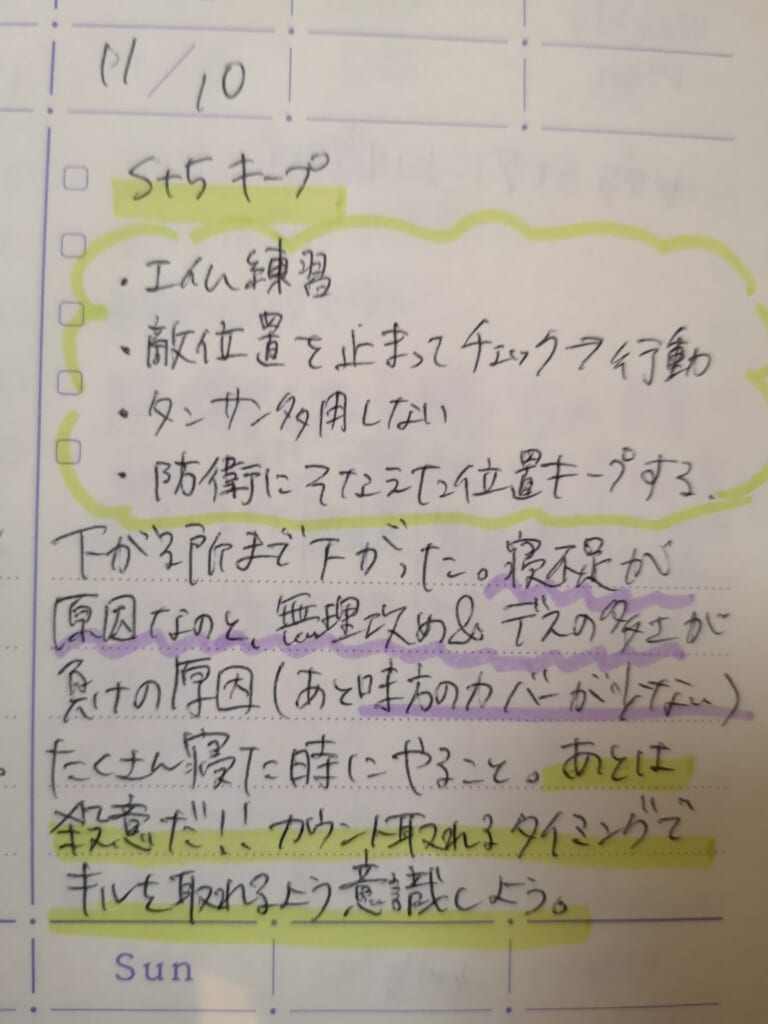 11/10
S+5 キープ
・エイム練習
・敵位置を止まってチェック→行動
・タンサン多用しない
・防衛にそなえた位置キープする.
下がる所まで下がった。寝不足が
原因なのと、無理攻め&デスの多さが
負けの原因(あと味方のカバーが少ない)
たくさん寝た時にやること。あとは
殺意だ!! カウント取れるタイミングで
キルを取れるよう意識しよう。
Sun